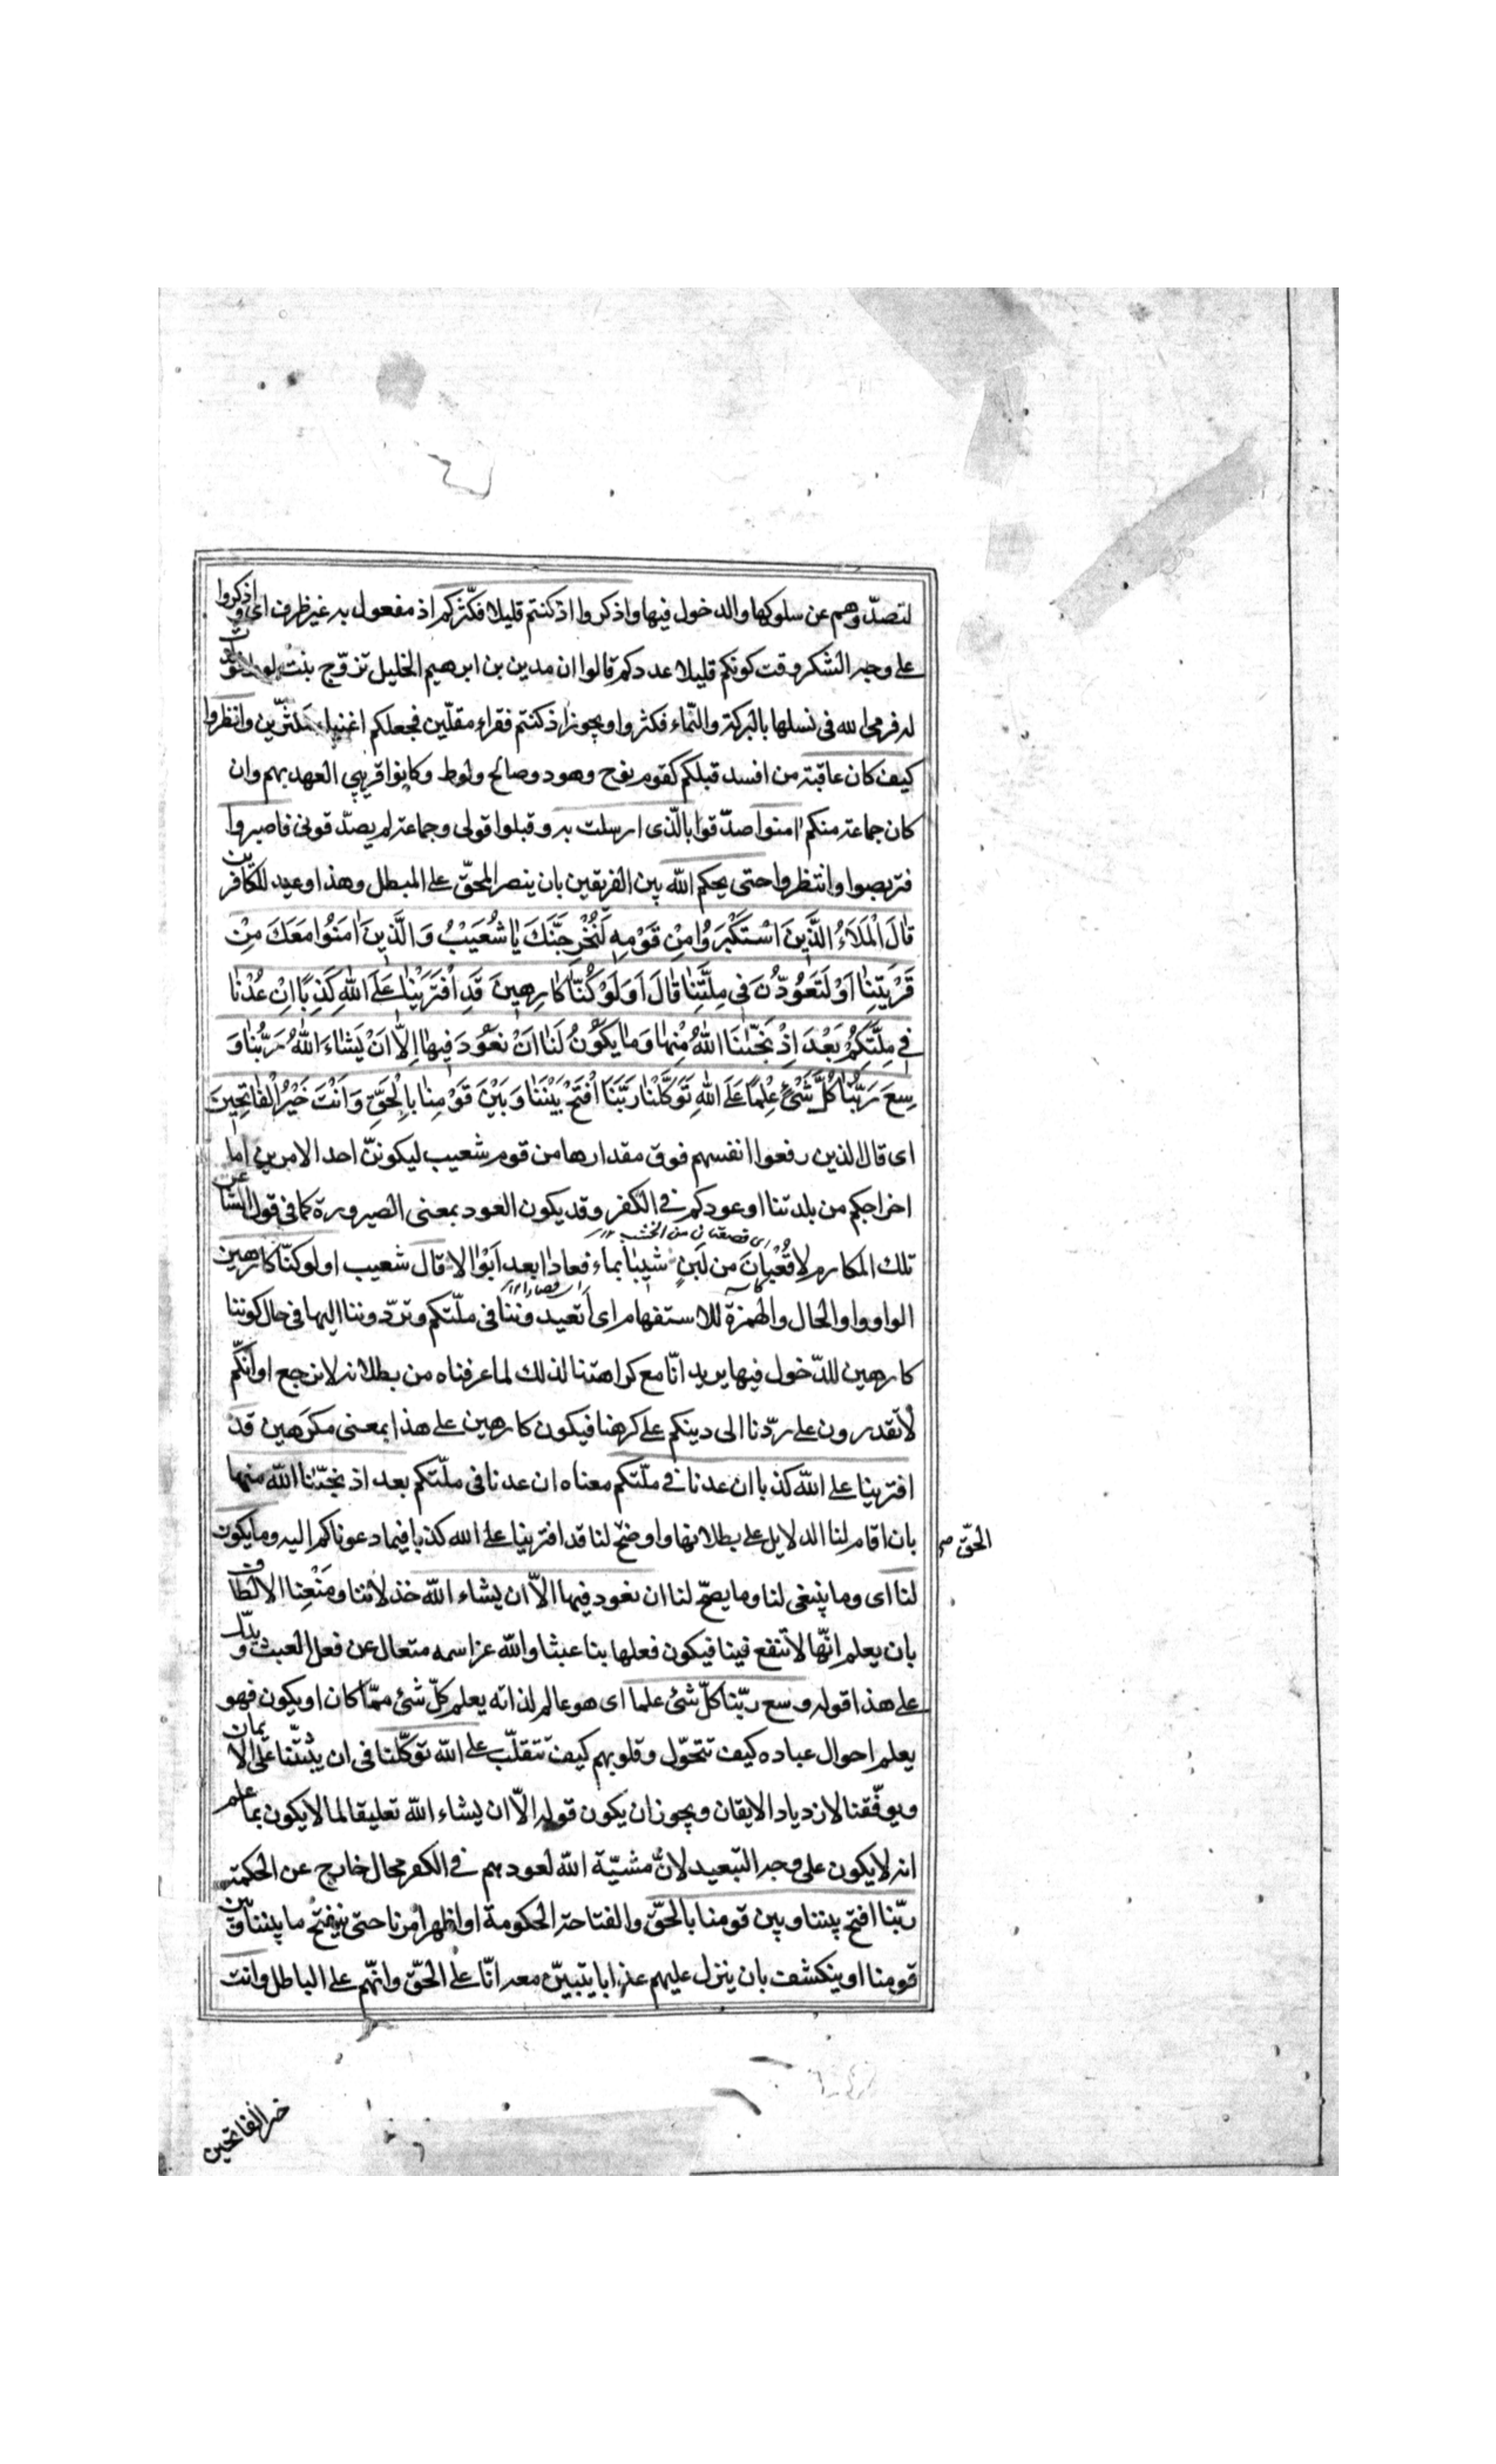 لتصدّوهم عن سلوكها والدخول فيها واذكروا اذ كنتم قليلا فكثّركم اذ مفعول به غير ظرف اى واذكروا
على وجه الشكر وقت كونكم قليلا عددكم قالوا ان مدين بن ابرهيم الخليل تزوّج بنت لوط فولدت
له فرمى الله فى نسلها بالبركة والنّماء فكثروا ويجوز اذ كنتم فقراء مقلّين فجعلكم اغنياء مكثّرين وانظروا
كيف كان عاقبة من افسد قبلكم كقوم نوح وهود وصالح ولوط وكانوا قريبى العهد بهم وان
كان جماعة منكم امنوا صدّقوا بالّذى ارسلت به وقبلوا قولى وجماعة لم يصدّقونى فاصبروا
فتربصوا وانتظروا حتى يحكم الله بين الفريقين بان ينصر المحقّ على المبطل وهذا وعيد للكافرين
قَالَ الْمَلَاءُ الَّذِينَ اسْتَكْبَرُوا مِنْ قَوْمِهِ لَنُخْرِجَنَّكَ يَا شُعَيْبُ وَالَّذِينَ اٰمَنُوا مَعَكَ مِنْ
قَرْيَتِنَا اَوْ لَتَعُودُنَّ فِى مِلَّتِنَا قَالَ اَوَلَوْ كُنَّا كَارِهِينَ قَدِ افْتَرَيْنَا عَلَى اللهِ كَذِبًا اِنْ عُدْنَا
فِى مِلَّتِكُمْ بَعْدَ اِذْ نَجّٰىنَا اللهُ مِنْهَا وَمَا يَكُونُ لَنَا اَنْ نَعُودَ فِيهَا اِلَّا اَنْ يَشَاءَ اللهُ رَبُّنَا وَ
سِعَ رَبُّنَا كُلَّ شَىْءٍ عِلْمًا عَلَى اللهِ تَوَكَّلْنَا رَبَّنَا افْتَحْ بَيْنَنَا وَبَيْنَ قَوْمِنَا بِالْحَقِّ وَاَنْتَ خَيْرُ الْفَاتِحِينَ
اى قال الذين رفعوا انفسهم فوق مقدارها من قوم شعيب ليكوننّ احد الامرين اما
اخراجكم من بلدتنا او عودكم فى الكفر وقد يكون العود بمعنى الصيرورة كما فى قول الشاعر
اى قصعتان من الخشب ١٢
تلك المكارم لا قُعْبانَ من لبنٍ شيبا بماء فعادا بعد ابوالا قال شعيب اولو كنّا كارهين
اى فصارا ١٢
الواو واو الحال والهمزة للاستفهام اى أتعيدوننا فى ملّتكم وتردّوننا اليها فى حال كوننا
كارهين للدّخول فيها يريد انّا مع كراهتنا لذلك لما عرفناه من بطلانه لا نرجع او انّكم
لا تقدرون على ردّنا الى دينكم على كرهنا فيكون كارهين على هذا بمعنى مكرَهين قد
افترينا على الله كذبا ان عدنا فى ملّتكم معناه ان عدنا فى ملّتكم بعد اذ نجّانا الله منها
بان اقام لنا الدلايل على بطلانها واوضح لنا قد افترينا على الله كذبا فيما دعوناكم اليه وما يكون
الحقّ صح
لنا اى وما ينبغى لنا وما يصحّ لنا ان نعود فيها الاّ ان يشاء الله خذلاننا ومَنْعِنا الالطاف
بان يعلم انّها لا تنفع فينا فيكون فعلها بنا عبثا والله عز اسمه متعال عن فعل العبث ويدّل
على هذا قوله وسع ربّنا كلّ شئ علما اى هو عالم لذاته يعلم كلّ شئ ممّا كان او يكون فهو
يعلم احوال عباده كيف تتحوّل وقلوبهم كيف تتقلّب على الله توكّلنا فى ان يثبّتنا على الايمان
ويوفّقنا لازدياد الايقان ويجوز ان يكون قوله الاّ ان يشاء الله تعليقا لما لا يكون بما علم
انه لا يكون على وجه التبعيد لانّ مشيّة الله لعودهم فى الكفر محال خارج عن الحكمة
ربّنا افتح بيننا وبين قومنا بالحقّ والفتاحة الحكومة او اظهر امرنا حتى ينفتح ما بيننا وبين
قومنا او ينكشف بان ينزل عليهم عذابا يتبيّن معه انّا على الحقّ وانّهم على الباطل وانت
خير الفاتحين